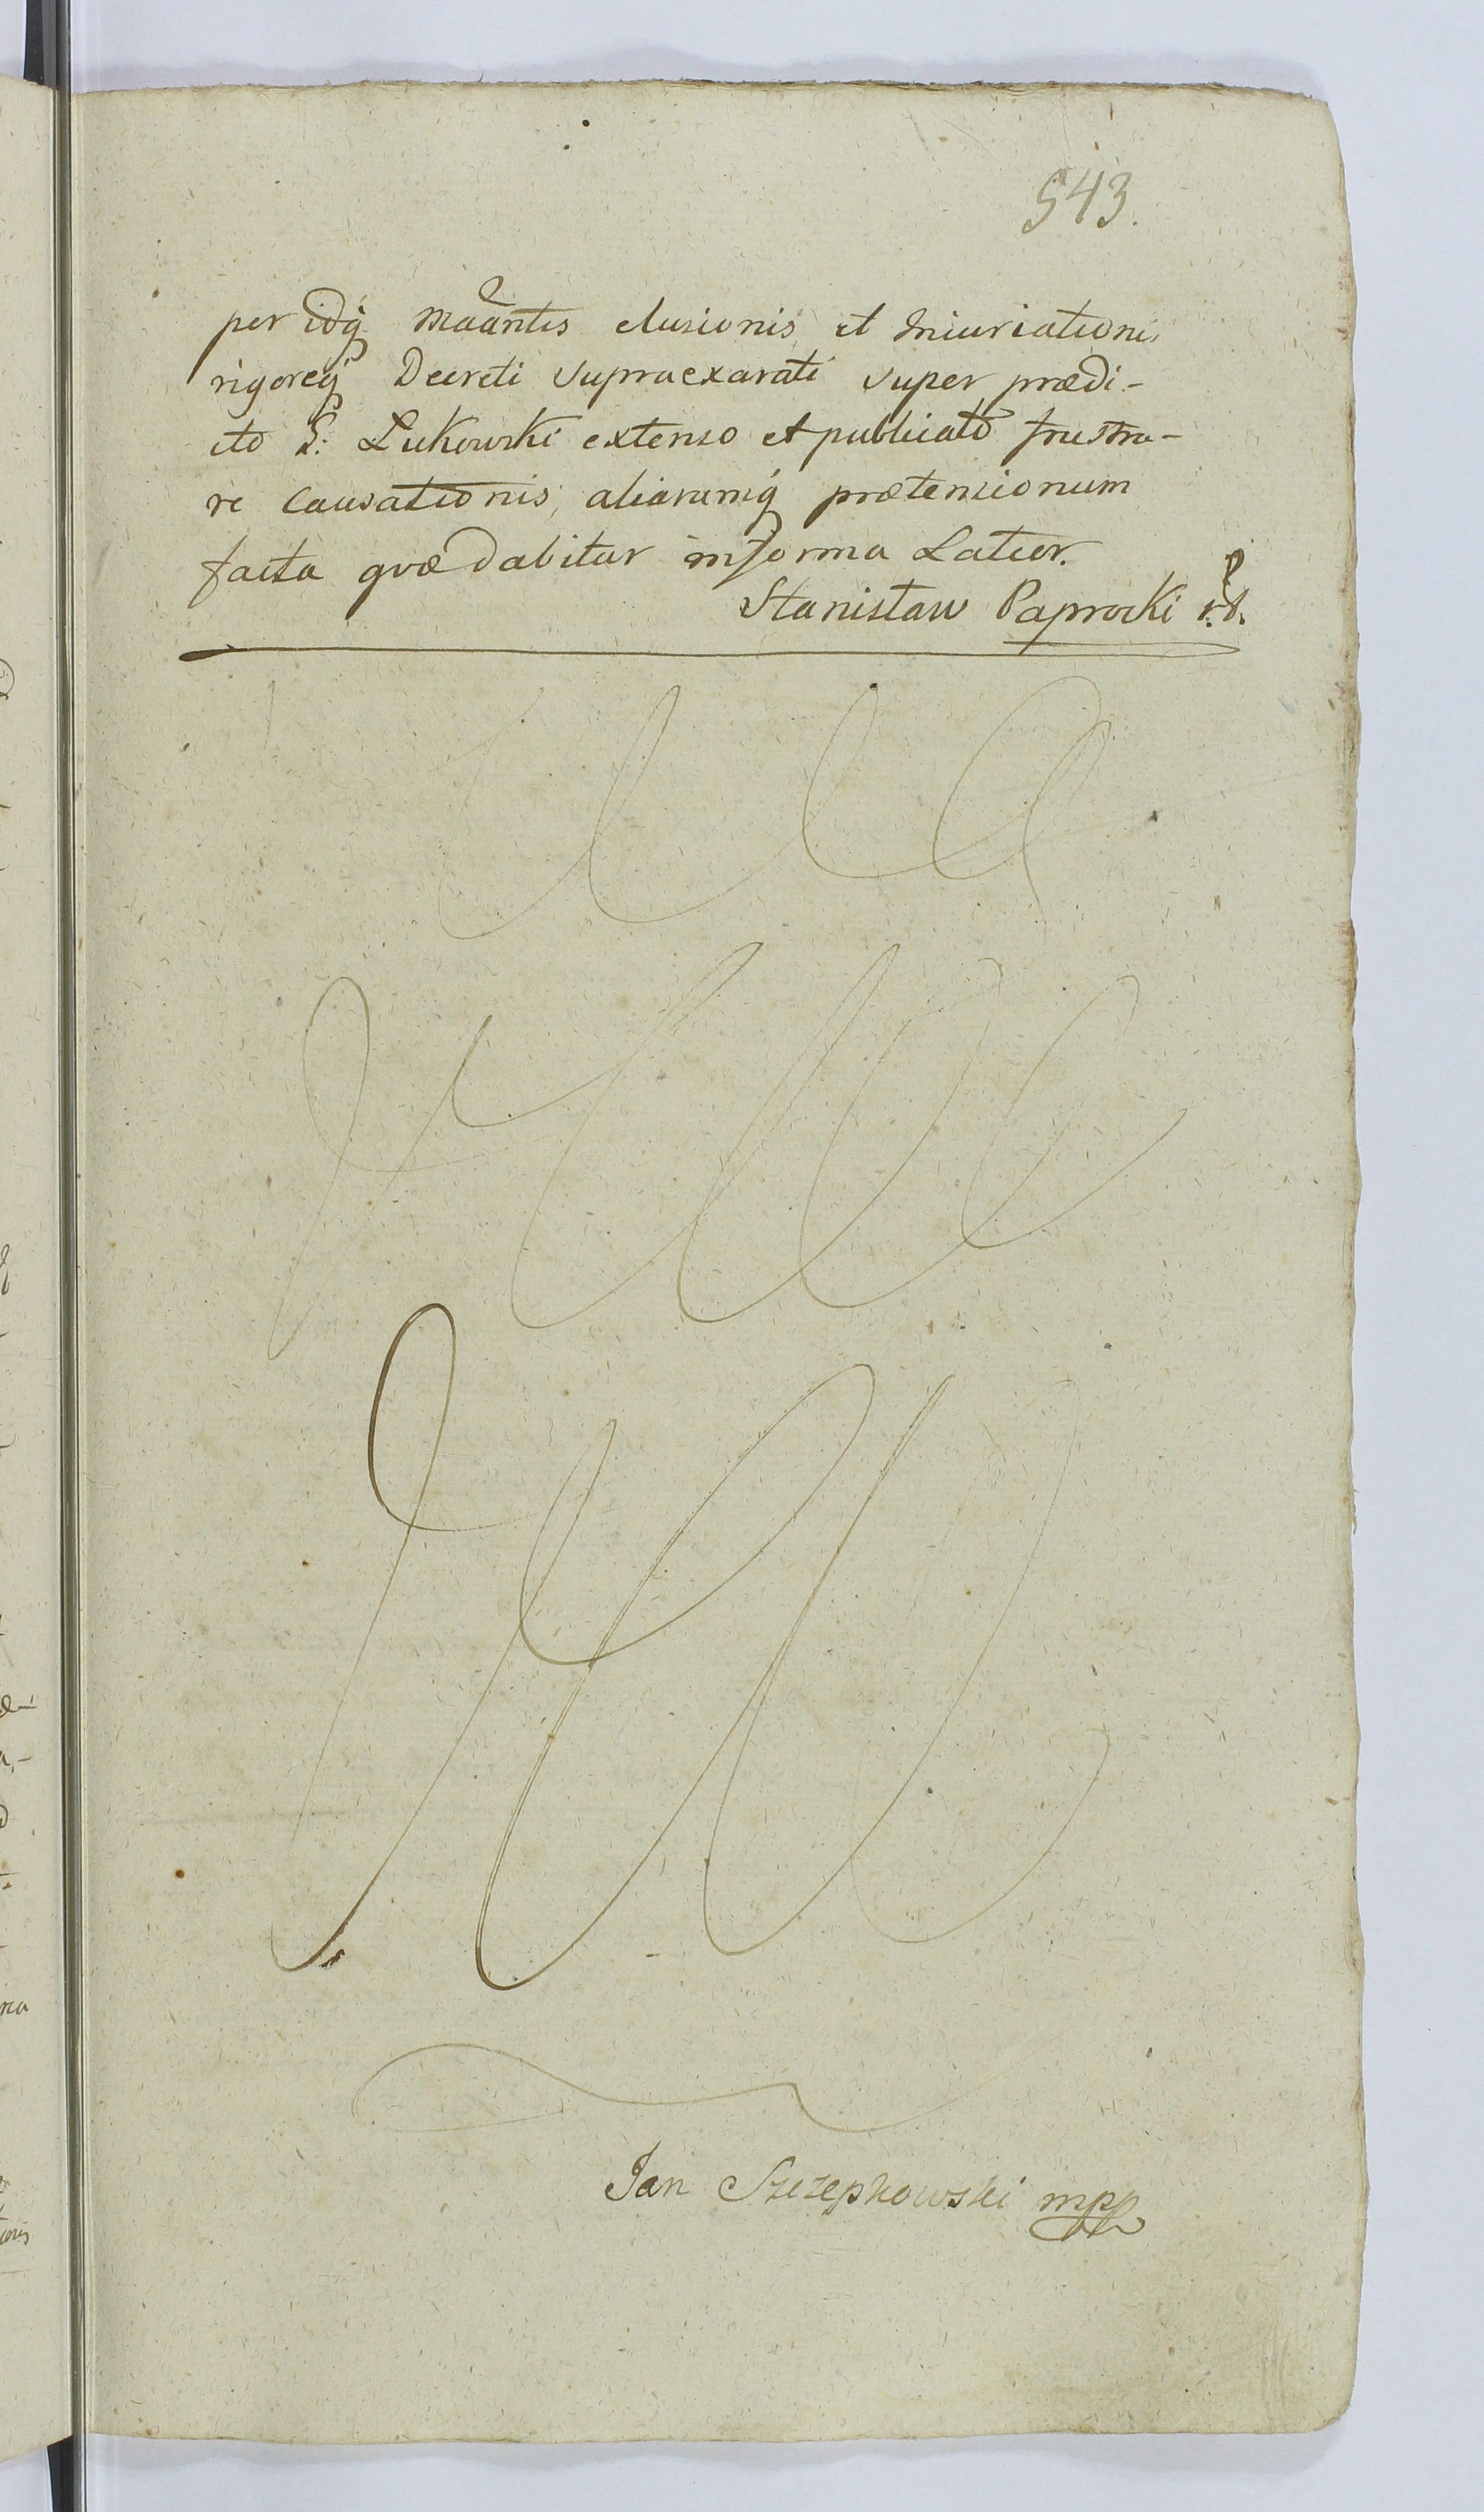 543.
per idq́ maantis elusionis et Iniuriationis
rigoreq́ Decreti supraexarati super prædi-
cto S: Łukowski extenso et publicato frustra-
re causationis, aliarumq́ prætensionum
facta qvæ dabitur in forma Latior.
Stanisław Paprocki
Jan Szczepkowski mpp